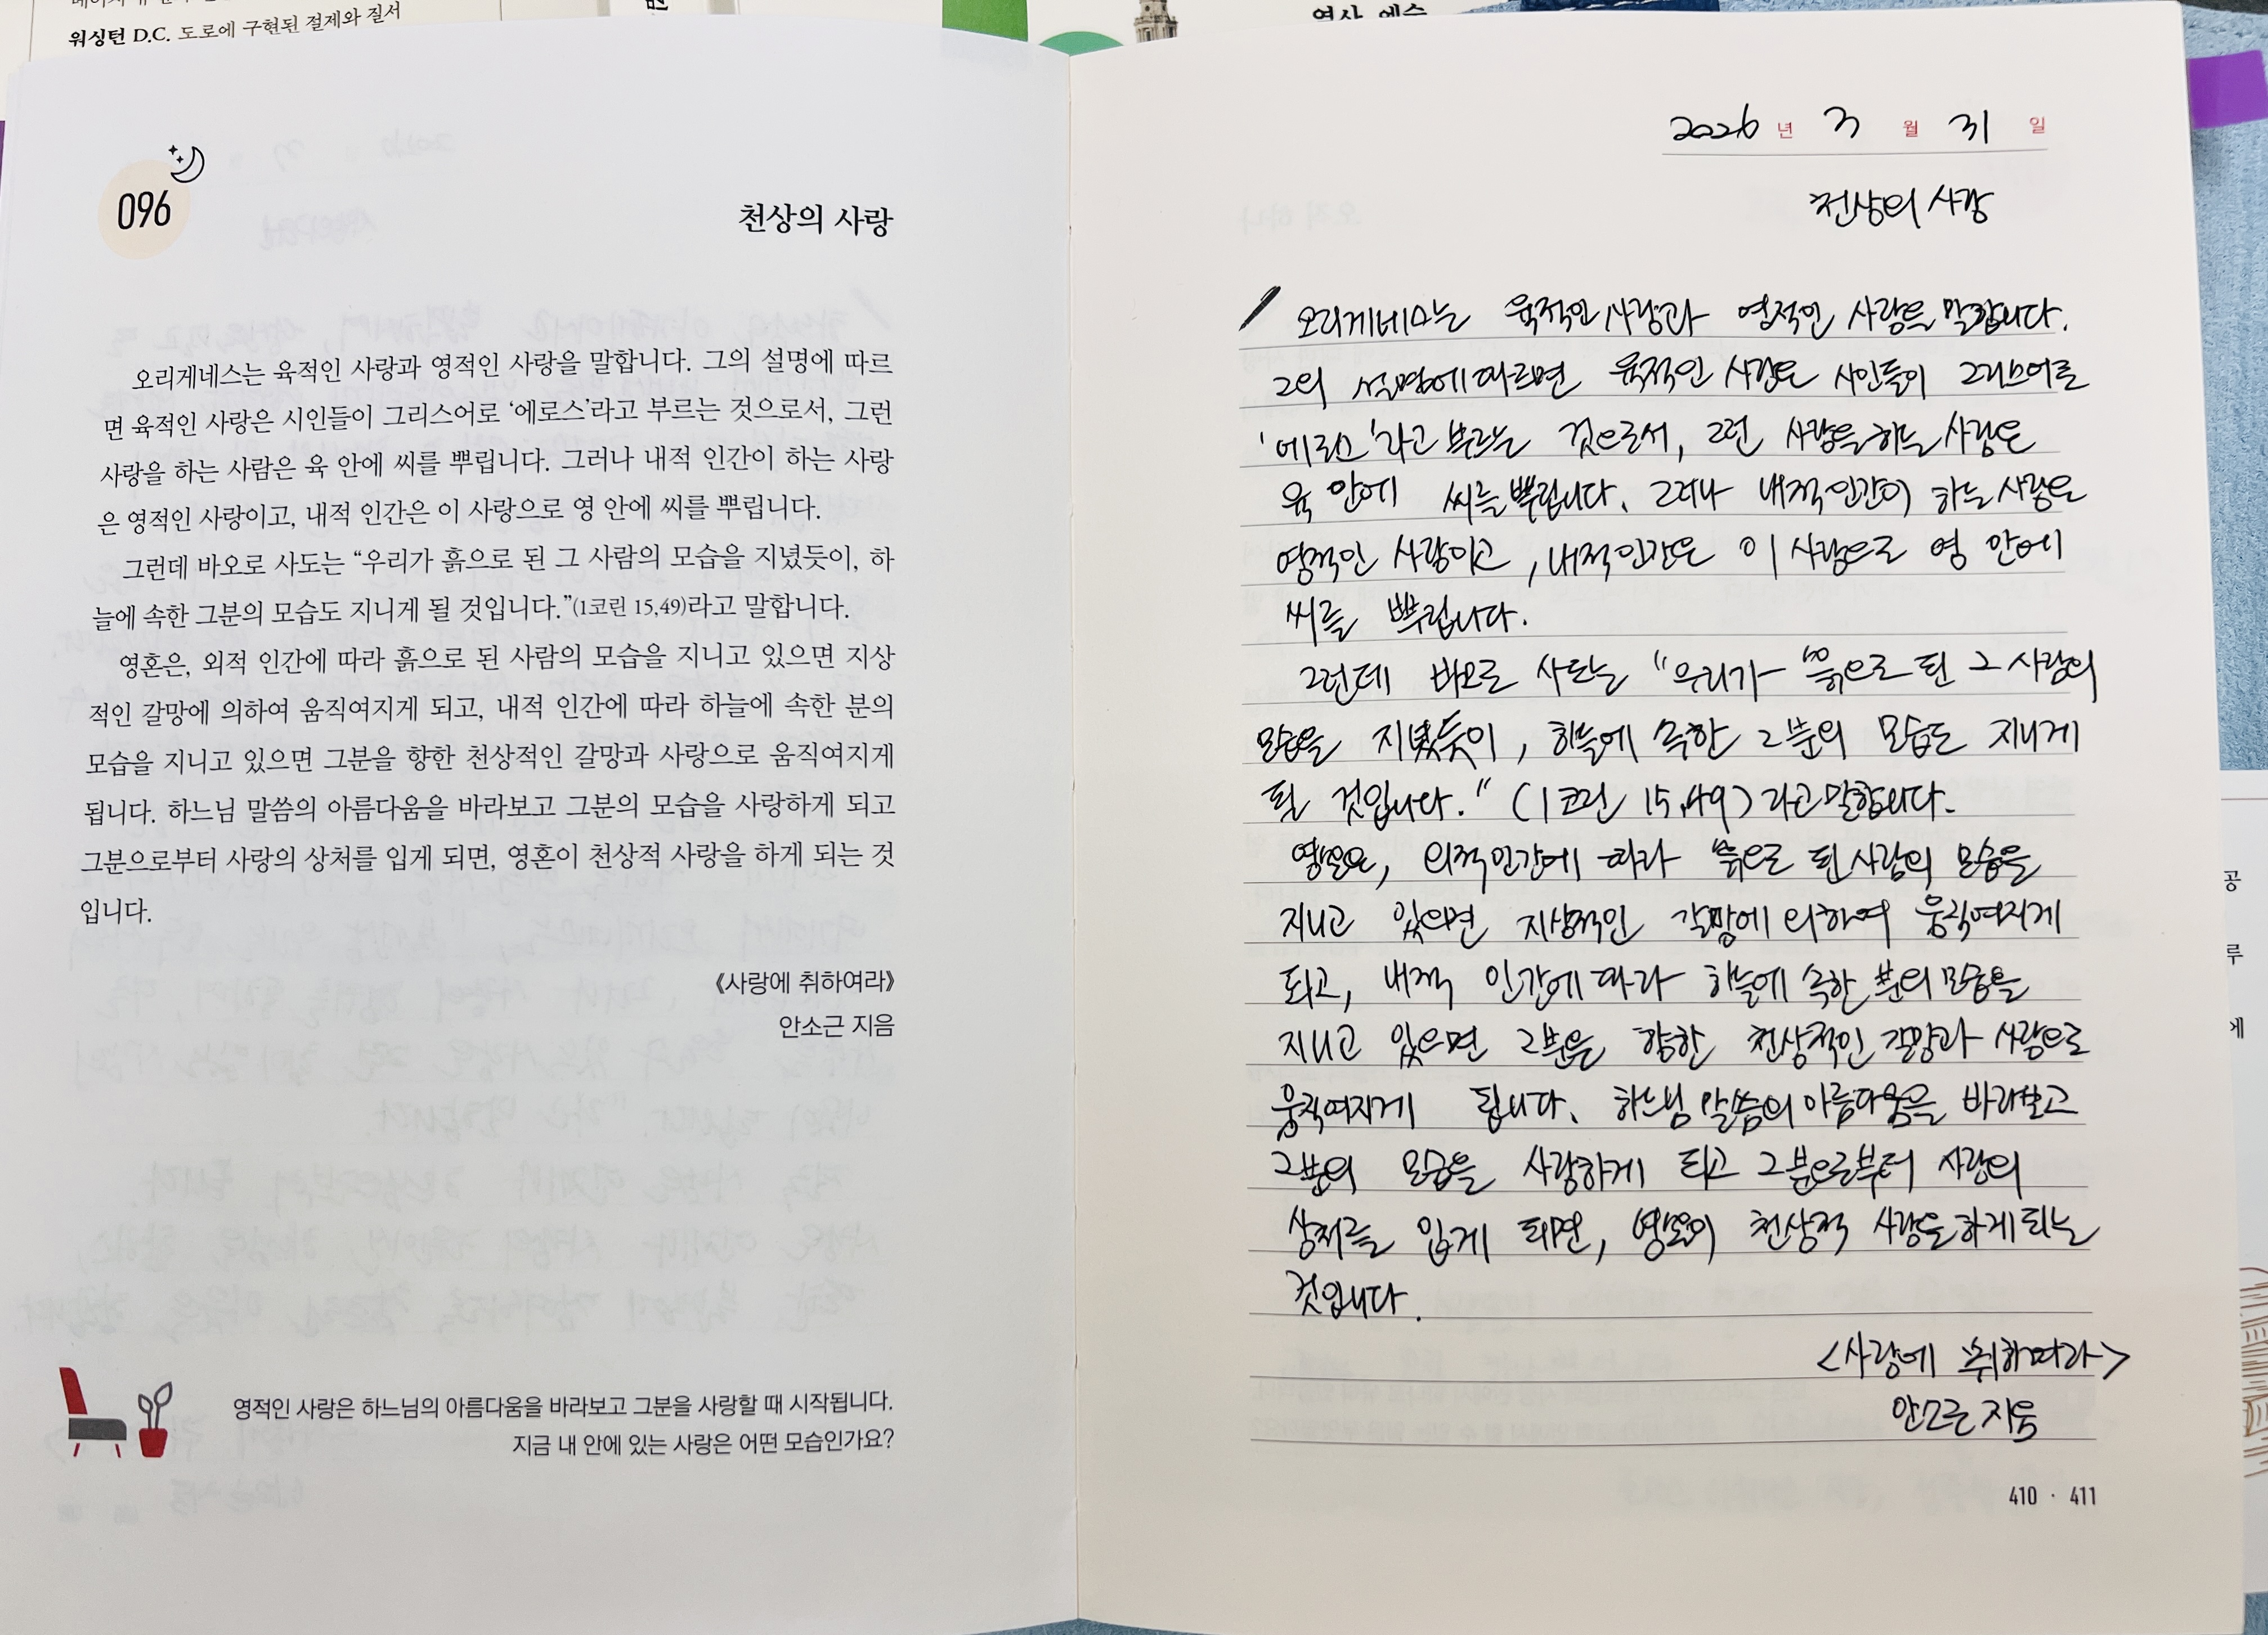 워싱턴 D.C. 도로에 구현된 절제와 질서
096
천상의 사랑
오리게네스는 육적인 사랑과 영적인 사랑을 말합니다. 그의 설명에 따르
면 육적인 사랑은 시인들이 그리스어로 ‘에로스’라고 부르는 것으로서, 그런
사랑을 하는 사람은 육 안에 씨를 뿌립니다. 그러나 내적 인간이 하는 사랑
은 영적인 사랑이고, 내적 인간은 이 사랑으로 영 안에 씨를 뿌립니다.
그런데 바오로 사도는 “우리가 흙으로 된 그 사람의 모습을 지녔듯이, 하
늘에 속한 그분의 모습도 지니게 될 것입니다.”(1코린 15,49)라고 말합니다.
영혼은, 외적 인간에 따라 흙으로 된 사람의 모습을 지니고 있으면 지상
적인 갈망에 의하여 움직여지게 되고, 내적 인간에 따라 하늘에 속한 분의
모습을 지니고 있으면 그분을 향한 천상적인 갈망과 사랑으로 움직여지게
됩니다. 하느님 말씀의 아름다움을 바라보고 그분의 모습을 사랑하게 되고
그분으로부터 사랑의 상처를 입게 되면, 영혼이 천상적 사랑을 하게 되는 것
입니다.
《사랑에 취하여라》
안소근 지음
영적인 사랑은 하느님의 아름다움을 바라보고 그분을 사랑할 때 시작됩니다.
지금 내 안에 있는 사랑은 어떤 모습인가요?
2026년 3월 31일
천상의 사랑
오리게네스는 육적인 사랑과 영적인 사랑을 말합니다.
그의 설명에 따르면 육적인 사랑은 시인들이 그리스어로
'에로스'라고 부르는 것으로서, 그런 사랑을 하는 사람은
육 안에 씨를 뿌립니다. 그러나 내적 인간이 하는 사랑은
영적인 사랑이고, 내적 인간은 이 사랑으로 영 안에
씨를 뿌립니다.
그런데 바오로 사도는 "우리가 흙으로 된 그 사람의
모습을 지녔듯이, 하늘에 속한 그분의 모습도 지니게
될 것입니다." (1코린 15,49)라고 말합니다.
영혼은, 외적 인간에 따라 흙으로 된 사람의 모습을
지니고 있으면 지상적인 갈망에 의하여 움직여지게
되고, 내적 인간에 따라 하늘에 속한 분의 모습을
지니고 있으면 그분을 향한 천상적인 갈망과 사랑으로
움직여지게 됩니다. 하느님 말씀의 아름다움을 바라보고
그분의 모습을 사랑하게 되고 그분으로부터 사랑의
상처를 입게 되면, 영혼이 천상적 사랑을 하게 되는
것입니다.
<사랑에 취하여라>
안소근 지음
410 · 411
공
루
에